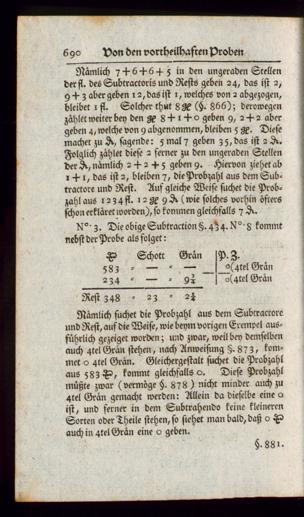 690 Von den vortheilhaften Proben
Nämlich 7+6+6+5 in den ungeraden Stellen
der fl. des Subtractoris und Rests geben 24, das ist 2,
9+3 aber geben 12, das ist 1, welches von 2 abgezogen,
bleibet 1 fl. Solcher thut 8 (§. 866); derowegen
zählet weiter bey den 8+1+0 geben 9, 2+2 aber
geben 4, welche von 9 abgenommen, bleiben 5. Diese
macher zu ₰, sagende: 5 mal 7 geben 35, das ist 2 ₰.
Folglich zählet diese 2 ferner zu den ungeraden Stellen
der ₰, nämlich 2+2+5 geben 9. Hiervon ziehet ab
1+1, das ist 2, bleiben 7, die Probzahl aus dem Sub-
tractore und Rest. Auf gleiche Weise suchet die Prob-
zahl aus 1234 fl. 12 9 ₰ (wie solches vorhin öfters
schon erkläret worden), so kommen gleichfalls 7 ₰.
N°. 3. Die obige Subtraction §. 434. N°. 8 kommt
nebst der Probe als folget:
Schott Grän P. Z.
583 " — " — 0(4tel Grän
234 " — " 9¼ 0(4tel Grän
Rest 348 " 23 " 2¾
Nämlich suchet die Probzahl aus dem Subtractore
und Rest, auf die Weise, wie beym vorigen Exempel aus-
führlich gezeiget worden; und zwar, weil bey demselben
auch 4tel Grän stehen, nach Anweisung §. 873, kom-
met 0 4tel Grän. Gleichergestalt suchet die Probzahl
aus 583, kommt gleichfalls 0. Diese Probzahl
müßte zwar (vermöge §. 878) nicht minder auch zu
4tel Grän gemacht werden: Allein da dieselbe eine 0
ist, und ferner in dem Subtrahendo keine kleineren
Sorten oder Theile stehen, so siehet man bald, daß 0
auch in 4tel Grän eine 0 geben.
§. 881.